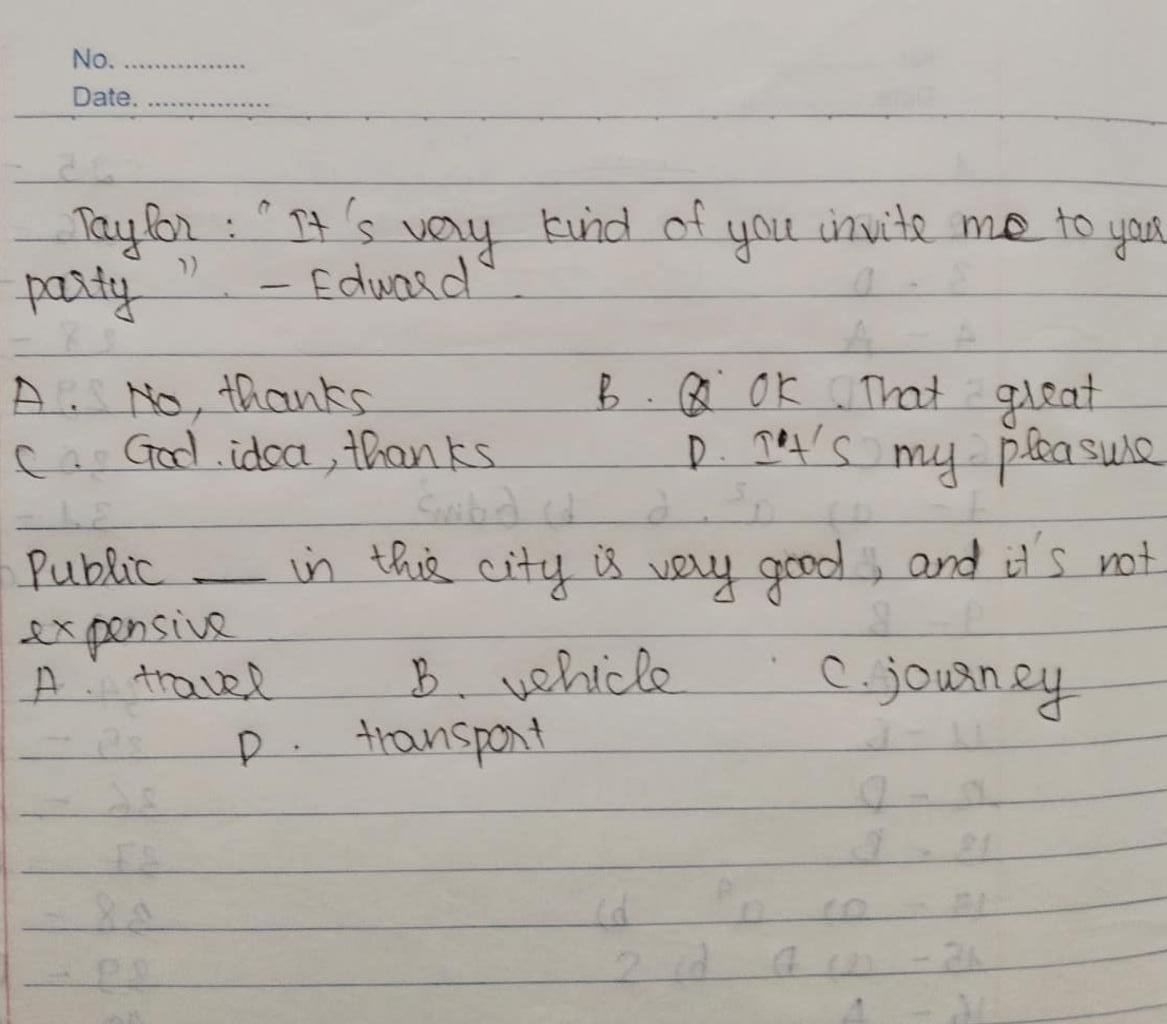 No. ................
Date. ................
Taylor : "It's very kind of you invite me to your
party". – Edward .
A. No, thanks B. OK. That great
C. God idea, thanks D. It's my pleasure
Public __ in this city is very good, and it's not
expensive
A. travel B. vehicle C. journey
D. transport